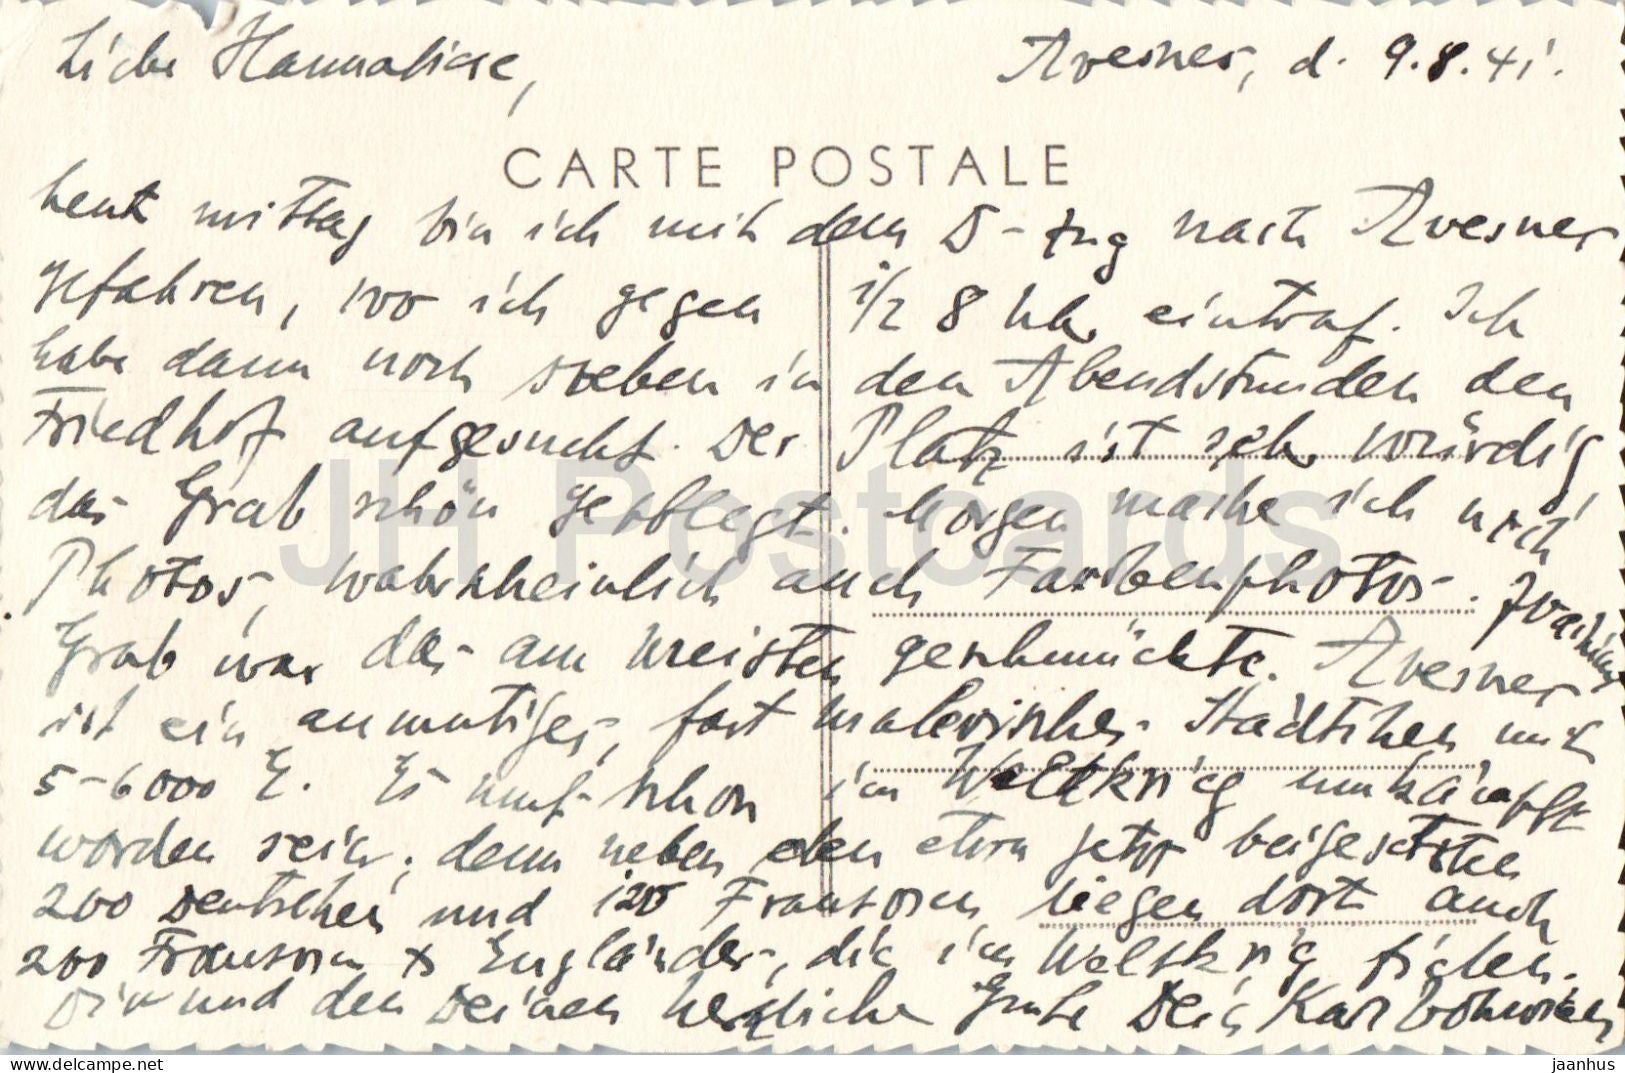 Liebe Hannaliese,
Avesnes, d. 9.8.41.
CARTE POSTALE
heute mittag bin ich mit dem D-Zug nach Avesnes
gefahren, wo ich gegen 1/2 8 Uhr eintraf. Ich
habe dann noch soeben in den Abendstunden den
Friedhof aufgesucht. Der Platz ist sehr würdig
das Grab schön gepflegt. Morgen mache ich noch
Photos, wahrscheinlich auch Farbenphotos.
Grab war das am meisten geschmückte. Avesnes
ist ein anmutiges, fast malerisches Städtchen mit
5-6000 E. Es muß schon im Weltkrieg umkämpft
worden sein, denn neben den etwa jetzt beigesetzten
200 Deutschen und 120 Franzosen liegen dort auch
200 Franzosen & Engländer, die im Weltkrieg fielen.
Dir und den Deinen herzliche Grüße Dein Karl
JH Postcards
jaanhus